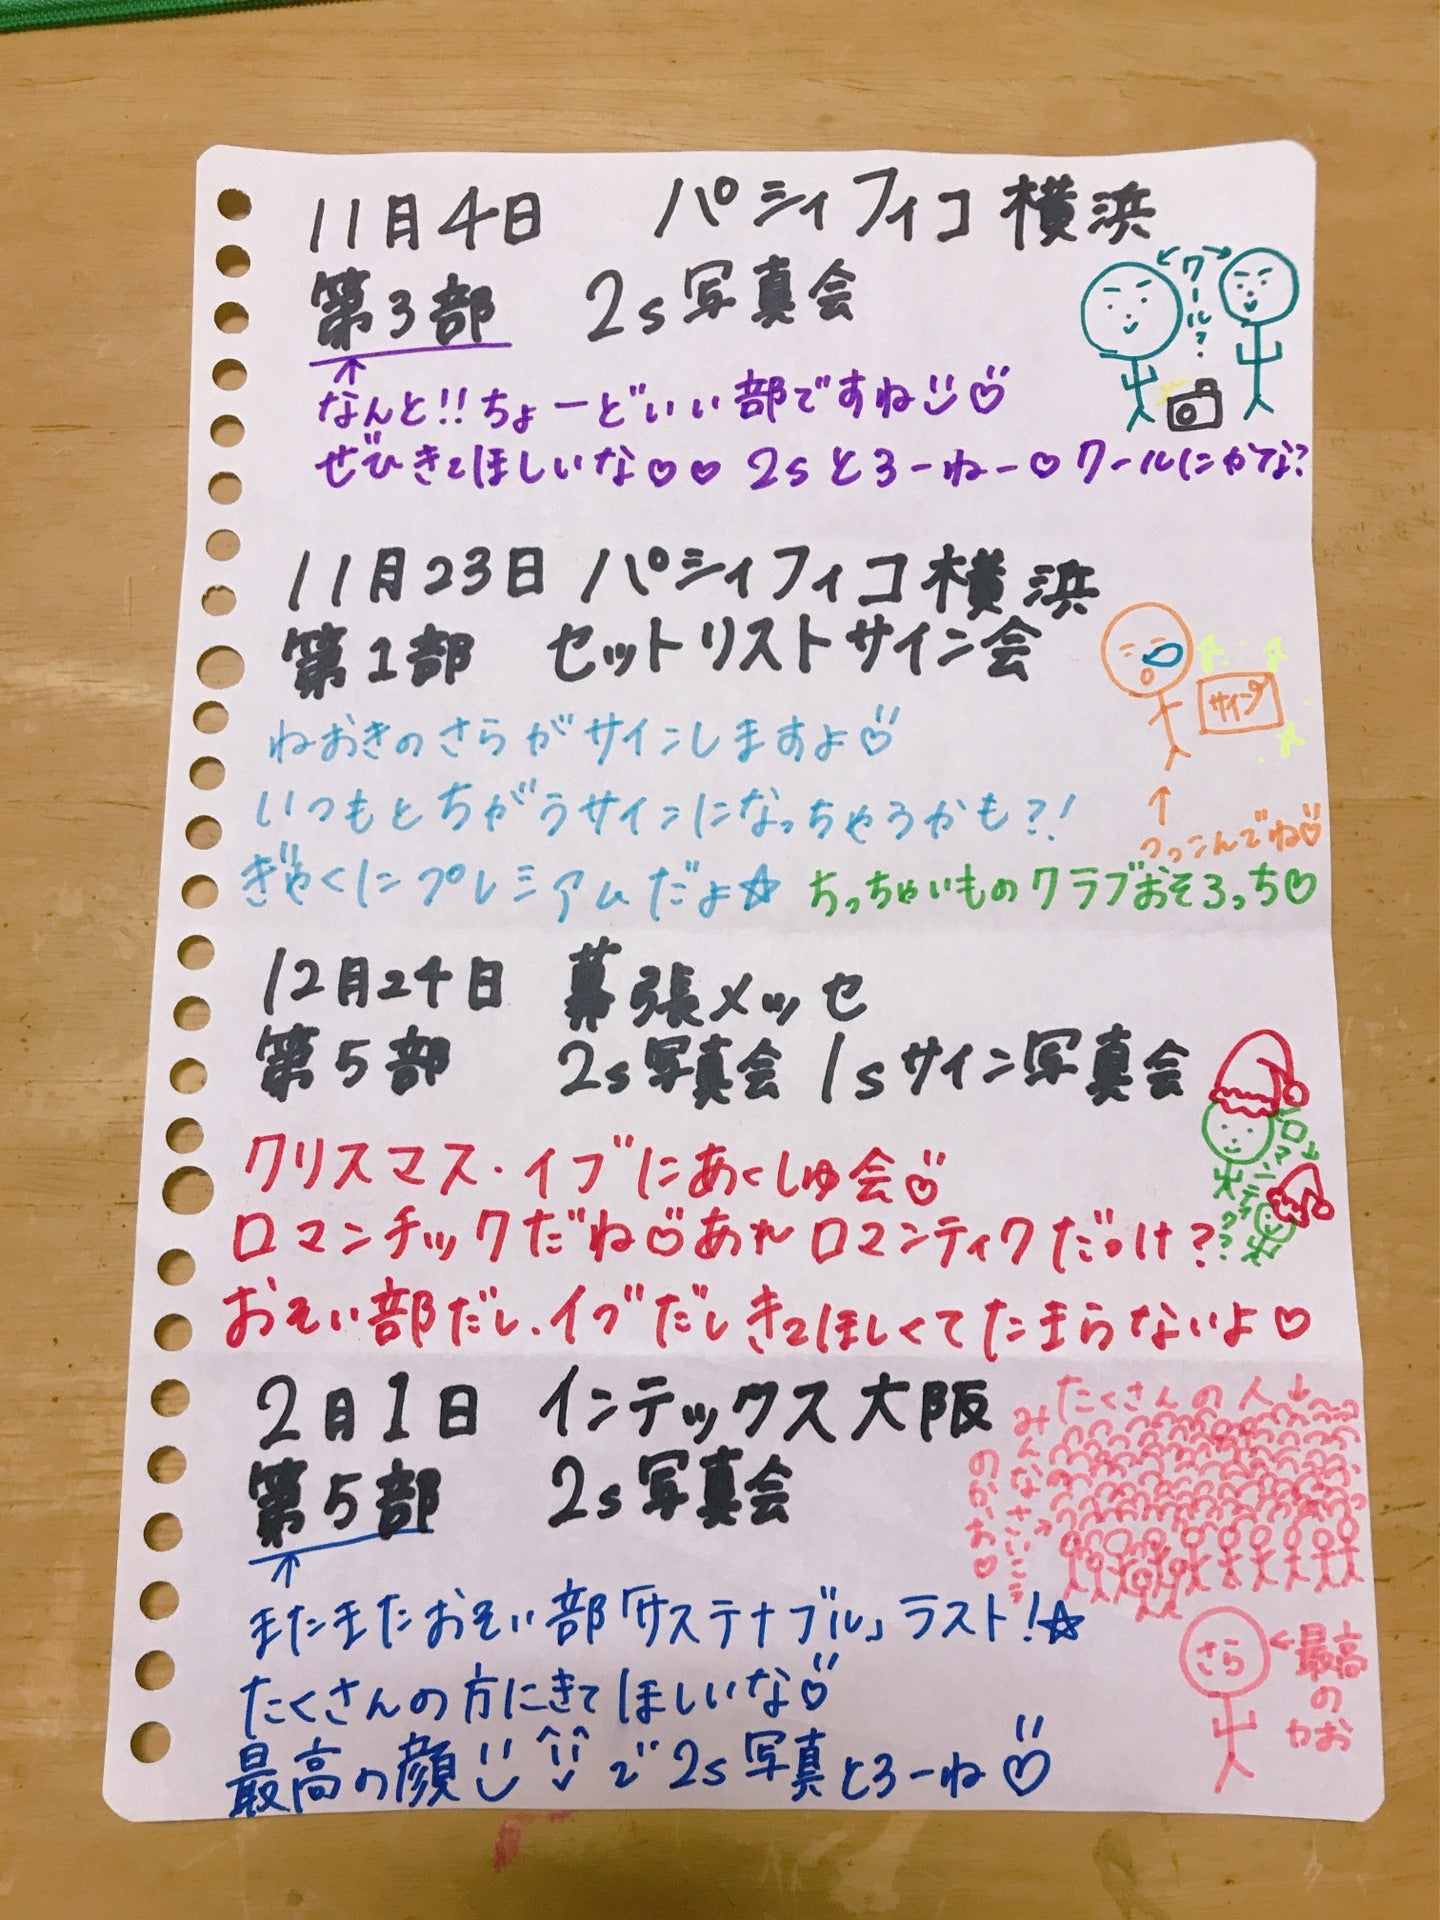 11月4日 パシフィコ横浜
第3部 2s写真会
←クール?→
↑
なんと!!ちょーどいい部ですね♡
ぜひきてほしいな♡♡ 2sとろーねー♡クールにかな?
11月23日 パシフィコ横浜
第1部 セットリストサイン会
サイン
ねおきのさらがサインしますよ♡
いつもとちがうサインになっちゃうかも?!
↑
つっこんでね♡
ぎゃくにプレミアムだよ☆ ちっちゃいものクラブおそろっち♡
12月24日 幕張メッセ
第5部 2s写真会 1sサイン写真会
クリスマス・イブにあくしゅ会♡
ロマンチックだね♡あれロマンティクだっけ?
おそい部だし、イブだしきてほしくてたまらないよ♡
2月1日 インテックス大阪
第5部 2s写真会
たくさんの人↓
みんなさいこう
のかお♡
↑
またまたおそい部「サステナブル」ラスト!☆
たくさんの方にきてほしいな♡
最高の顔で2s写真とろーね♡
さら
←最高
の
かお